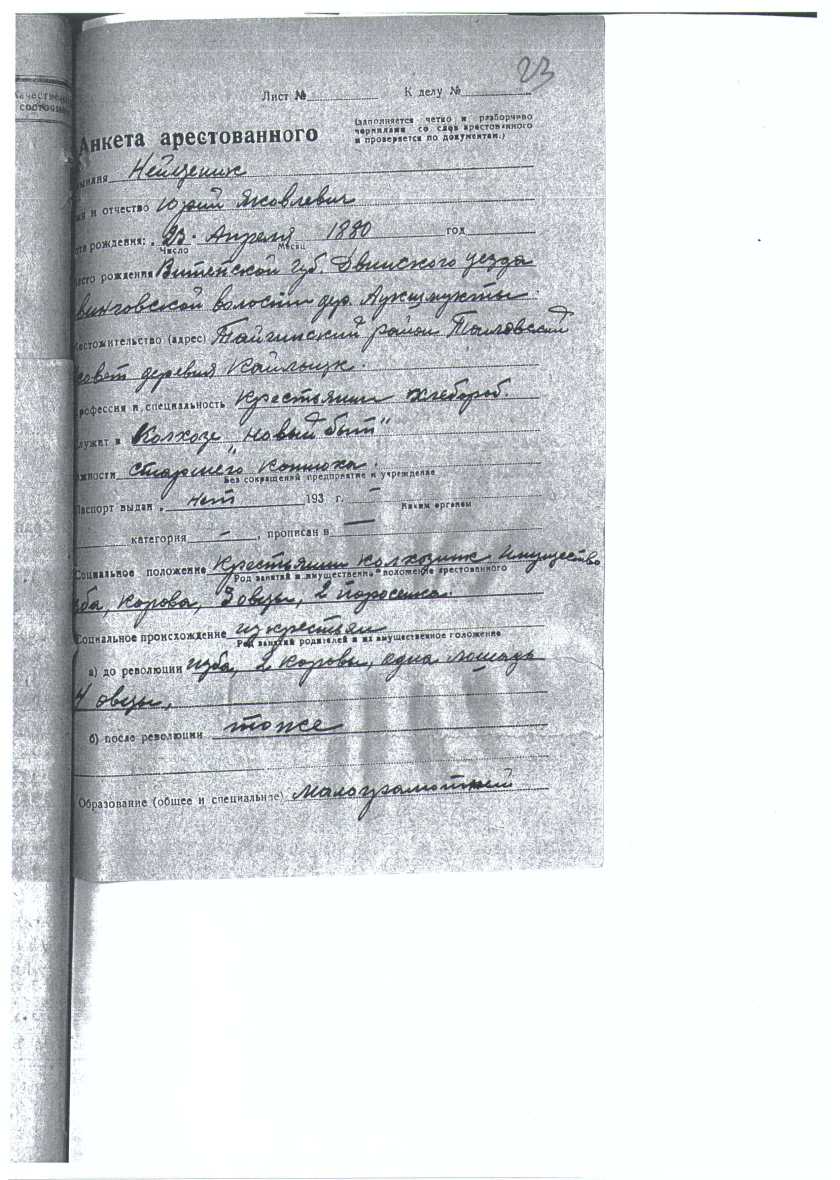 23
Лист № К делу №
Анкета арестованного
(заполняется четко и разборчиво
чернилами со слов арестованного
и проверяется по документам.)
Нейценик
и отчество Юрий Яковлевич
рождения: 23 Апреля 1880 год
Число Месяц
рождения Витебской губ. Двинского уезда
волости дер.
(адрес) Тайгинский район
совет деревня Кайлыцк.
профессия и специальность Крестьянин хлебороб.
служит в Колхозе "новый быт"
старшего конюха.
Без сокращений предприятие и учреждение
Паспорт выдан нет 193 г. —
Каким органом
категория — , прописан в —
Социальное положение Крестьянин колхозник. Имущество
Род занятий и имущественное положение арестованного
корова, 3 овцы, 2 поросенка.
Социальное происхождение из крестьян
Род занятий родителей и их имущественное положение
а) до революции изба, 2 коровы, одна лошадь
4 овцы,
б) после революции тоже
Образование (общее и специальное) малограмотный